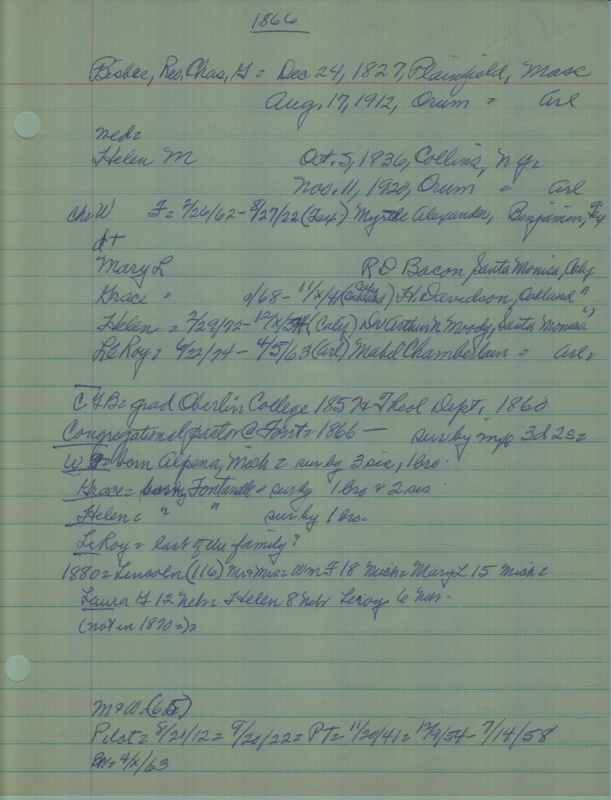 1866
Bisbee, Rev. Chas, G = Dec 24, 1827, Plainfield, Mass
Aug. 17, 1912, Orum = Arl
med=
Helen M Oct. 5, 1836, Collins, N Y=
Nov. 11, 1920, Orum " Arl
ch= W F = 2/26/62 - 8/27/22 (Tex) Myrtle Alexander, Benjamin,
dt
Mary L R D Bacon Santa Monica, Caly
Grace " /68 - 11/x/4 H Davidson, Oakland "
Helen = 2/29/72 - 12/x/54 (Caly) Dr Arthur N Moody, Santa Monica "
LeRoy = 4/22/74 - 4/5/63 (Arl) Mabel Chamberlain = Arl.
C G B = grad Oberlin College 1857 & Theol Dept. 1860
Congregational pastor @ Font = 1866 — sur by 3d 2s =
W F = born Alpena, Mich = sur by 3 sis, 1 bro.
Grace = born Fontanelle = sur by 1 bro & 2 sis
Helen = " " sur by 1 bro.
LeRoy = last of the family?
1880 = Lincoln (116) Mr & Mrs = Wm F 18 Mich = Mary L 15 Mich =
Laura G 12 Neb = Helen 8 Neb Leroy 6 Neb.
(not in 1870 =) =
M & W = (65)
Pilot = 8/21/12 = 9/20/22 = PT = 11/20/41 = 12/9/54 - 7/14/58
4/x/63